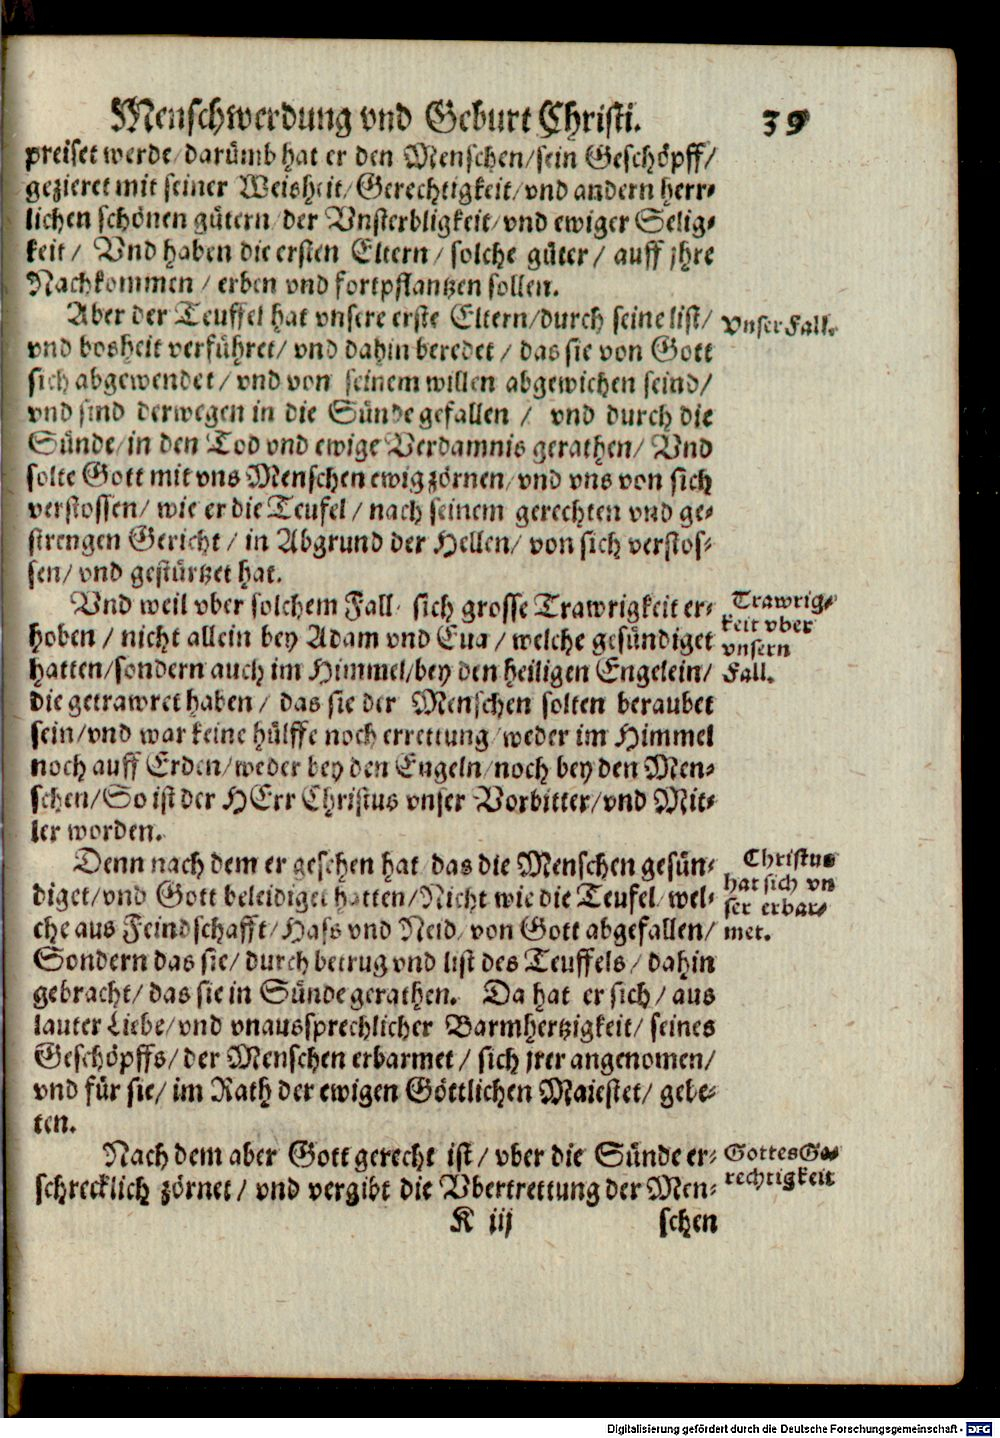 Menschwerdung vnd Geburt Christi. 39
preiset werde/darümb hat er den Menschen/sein Geschöpff/
gezieret mit seiner Weisheit/Gerechtigkeit/vnd andern herr-
lichen schönen gütern/der Vnsterbligkeit/vnd ewiger Selig-
keit/ Vnd haben die ersten Eltern/ solche güter/ auff jhre
Nachkommen/ erben vnd fortpflantzen sollen.
Aber der Teuffel hat vnsere erste Eltern/durch seine list/
vnd bosheit verführet/ vnd dahin beredet/ das sie von Gott
sich abgewendet/ vnd von seinem willen abgewichen seind/
vnd sind derwegen in die Sünde gefallen/ vnd durch die
Sünde/in den Tod vnd ewige Verdamnis gerathen/ Vnd
solte Gott mit vns Menschen ewig zörnen/vnd vns von sich
verstossen/ wie er die Teufel/ nach seinem gerechten vnd ge-
strengen Gericht/ in Abgrund der Hellen/ von sich verstos-
sen/ vnd gestürtzet hat.
Vnser Fall.
Vnd weil vber solchem Fall/ sich grosse Trawrigkeit er-
hoben/ nicht allein bey Adam vnd Eua/ welche gesündiget
hatten/sondern auch im Himmel/bey den heiligen Engelein/
die getrawret haben/ das sie der Menschen solten beraubet
sein/vnd war keine hülffe noch errettung/weder im Himmel
noch auff Erden/weder bey den Engeln/noch bey den Men-
schen/So ist der HErr Christus vnser Vorbitter/vnd Mit-
ler worden.
Trawrig-
keit vber
vnsern
Fall.
Denn nach dem er gesehen hat das die Menschen gesün-
diget/vnd Gott beleidiget hatten/Nicht wie die Teufel/wel-
che aus Feindschafft/Hass vnd Neid/von Gott abgefallen/
Sondern das sie/ durch betrug vnd list des Teuffels/ dahin
gebracht/ das sie in Sünde gerathen. Da hat er sich/ aus
lauter Liebe/vnd vnaussprechlicher Barmhertzigkeit/ seines
Geschöpffs/ der Menschen erbarmet/ sich jrer angenomen/
vnd für sie/ im Rath der ewigen Göttlichen Maiestet/ gebe-
ten.
Christus
hat sich vn
ser erbar-
met.
Nach dem aber Gott gerecht ist/ vber die Sünde er-
schrecklich zörnet/ vnd vergibt die Vbertrettung der Men-
Gottes Ge-
rechtigkeit
K iij schen
Digitalisierung gefördert durch die Deutsche Forschungsgemeinschaft - DFG